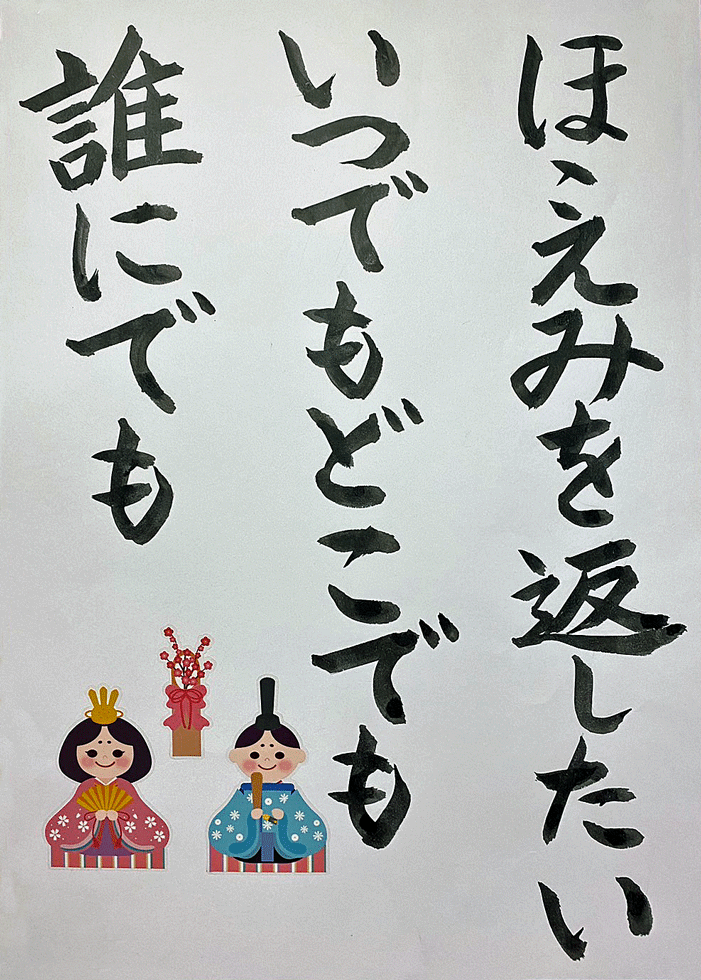 ほゝえみを返したい
いつでもどこでも
誰にでも